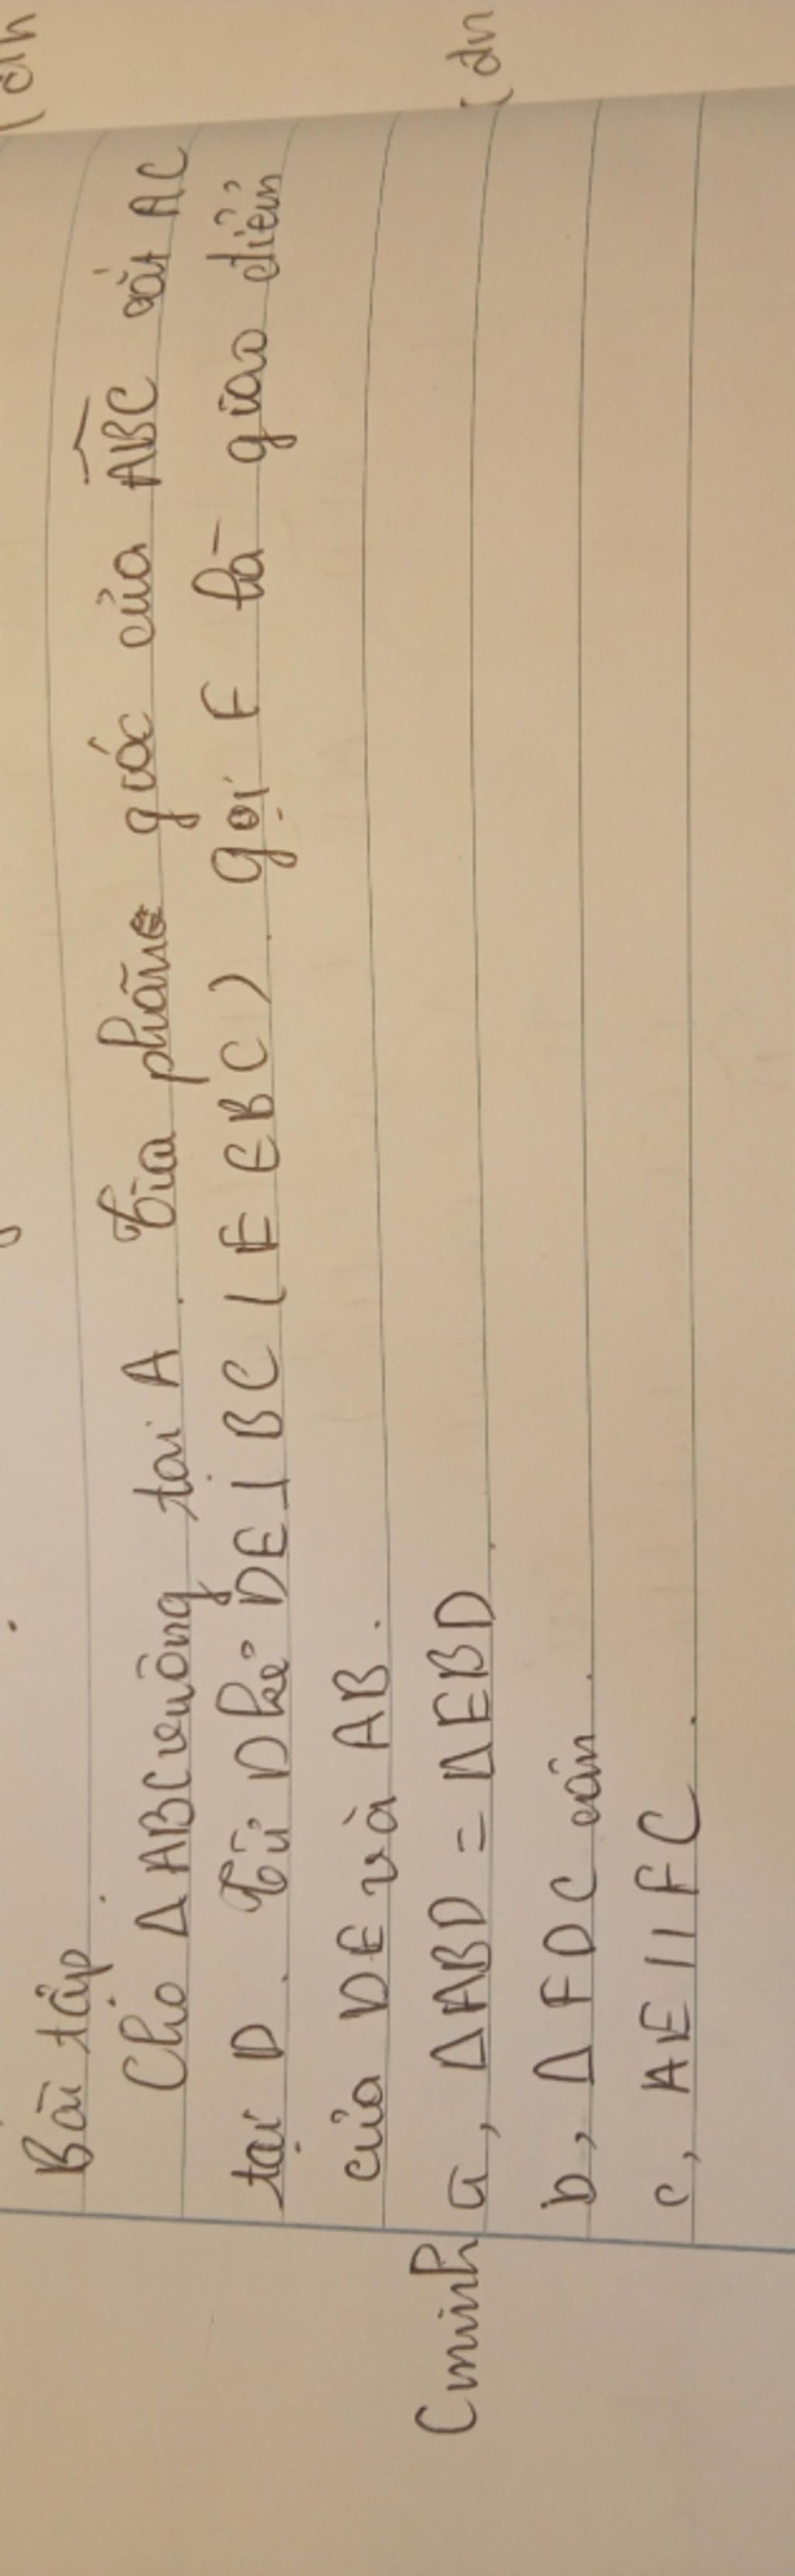 Bài tập
Cho ΔABC vuông tại A. Tia phân giác của ABC cắt AC
tại D. Từ D kẻ DE ⊥ BC (E ∈ BC). gọi F là giao điểm
của DE và AB.
Cminh a, ΔABD = ΔEBD.
b, ΔFDC cân.
c, AE // FC.